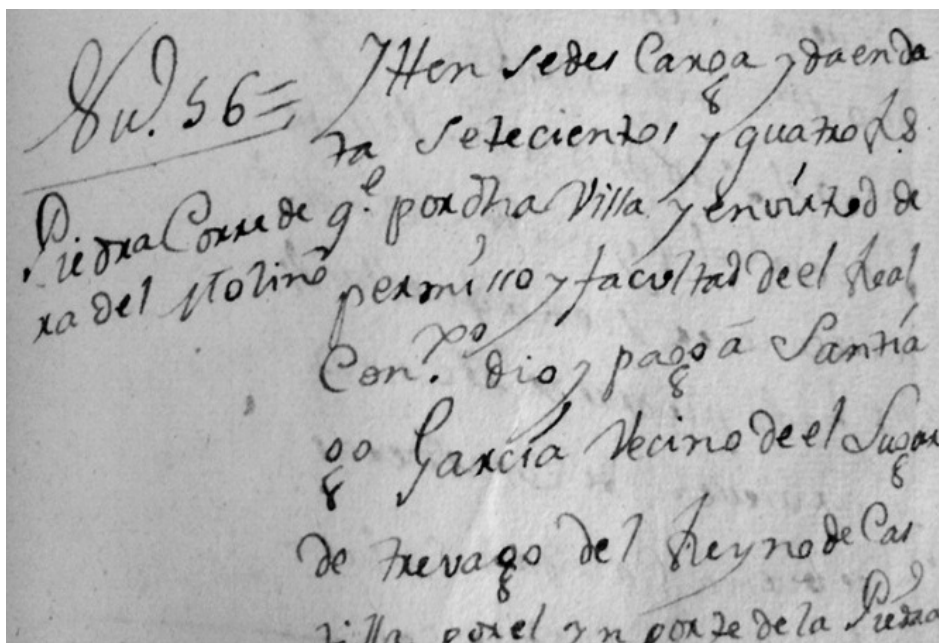 Nu. 56=
Piedra Corre de
ra del Molino
Ytten sedes Carga y da en da
ta setecientos y quatro Rs
q.e por dha Villa y en virtud de
permisso y facultad de el Real
Con.xo dio y pago a Santia
go Garcia Vecino de el Lugar
de trevago del Reyno de Cas
tilla por el ynporte de la Piedra